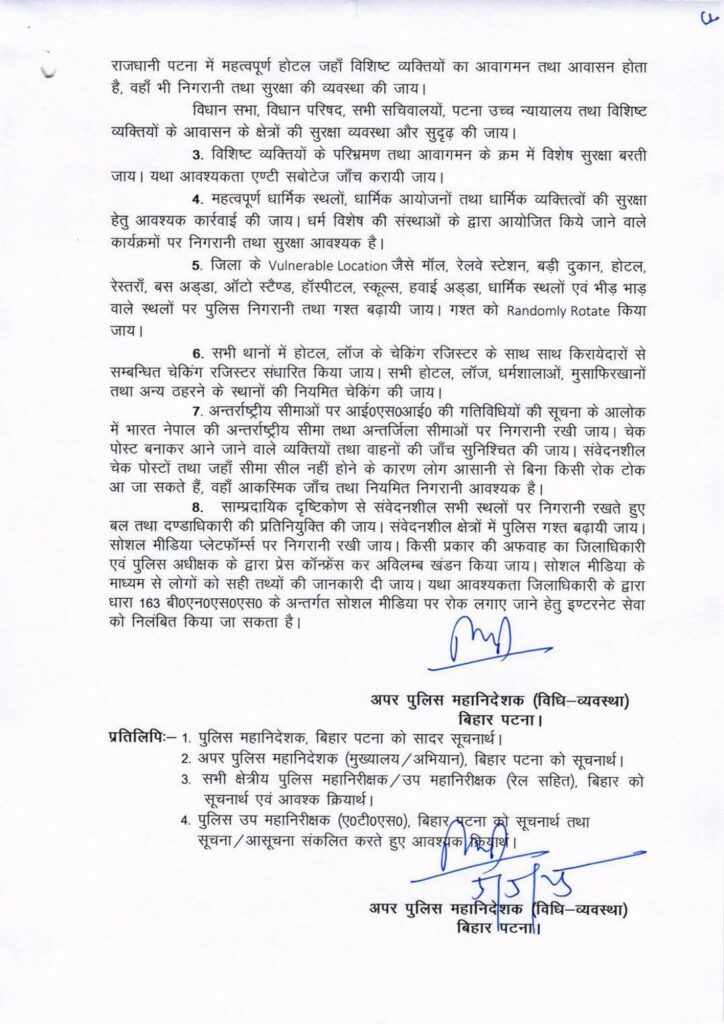 राजधानी पटना में महत्वपूर्ण होटल जहाँ विशिष्ट व्यक्तियों का आवागमन तथा आवासन होता
है, वहाँ भी निगरानी तथा सुरक्षा की व्यवस्था की जाय।
विधान सभा, विधान परिषद, सभी सचिवालयों, पटना उच्च न्यायालय तथा विशिष्ट
व्यक्तियों के आवासन के क्षेत्रों की सुरक्षा व्यवस्था और सुदृढ़ की जाय।
3. विशिष्ट व्यक्तियों के परिभ्रमण तथा आवागमन के क्रम में विशेष सुरक्षा बरती
जाय। यथा आवश्यकता एण्टी सबोटेज जाँच करायी जाय।
4. महत्वपूर्ण धार्मिक स्थलों, धार्मिक आयोजनों तथा धार्मिक व्यक्तित्वों की सुरक्षा
हेतु आवश्यक कार्रवाई की जाय। धर्म विशेष की संस्थाओं के द्वारा आयोजित किये जाने वाले
कार्यक्रमों पर निगरानी तथा सुरक्षा आवश्यक है।
5. जिला के Vulnerable Location जैसे मॉल, रेलवे स्टेशन, बड़ी दुकान, होटल,
रेस्तराँ, बस अड्डा, ऑटो स्टैण्ड, हॉस्पीटल, स्कूल्स, हवाई अड्डा, धार्मिक स्थलों एवं भीड़ भाड़
वाले स्थलों पर पुलिस निगरानी तथा गश्त बढ़ायी जाय। गश्त को Randomly Rotate किया
जाय।
6. सभी थानों में होटल, लॉज के चेकिंग रजिस्टर के साथ साथ किरायेदारों से
सम्बन्धित चेकिंग रजिस्टर संधारित किया जाय। सभी होटल, लॉज, धर्मशालाओं, मुसाफिरखानों
तथा अन्य ठहरने के स्थानों की नियमित चेकिंग की जाय।
7. अन्तर्राष्ट्रीय सीमाओं पर आई0एस0आई0 की गतिविधियों की सूचना के आलोक
में भारत नेपाल की अन्तर्राष्ट्रीय सीमा तथा अन्तर्जिला सीमाओं पर निगरानी रखी जाय। चेक
पोस्ट बनाकर आने जाने वाले व्यक्तियों तथा वाहनों की जाँच सुनिश्चित की जाय। संवेदनशील
चेक पोस्टों तथा जहाँ सीमा सील नहीं होने के कारण लोग आसानी से बिना किसी रोक टोक
आ जा सकते हैं, वहाँ आकस्मिक जाँच तथा नियमित निगरानी आवश्यक है।
8. साम्प्रदायिक दृष्टिकोण से संवेदनशील सभी स्थलों पर निगरानी रखते हुए
बल तथा दण्डाधिकारी की प्रतिनियुक्ति की जाय। संवेदनशील क्षेत्रों में पुलिस गश्त बढ़ायी जाय।
सोशल मीडिया प्लेटफॉर्म्स पर निगरानी रखी जाय। किसी प्रकार की अफवाह का जिलाधिकारी
एवं पुलिस अधीक्षक के द्वारा प्रेस कॉन्फ्रेंस कर अविलम्ब खंडन किया जाय। सोशल मीडिया के
माध्यम से लोगों को सही तथ्यों की जानकारी दी जाय। यथा आवश्यकता जिलाधिकारी के द्वारा
धारा 163 बी0एन0एस0एस0 के अन्तर्गत सोशल मीडिया पर रोक लगाए जाने हेतु इण्टरनेट सेवा
को निलंबित किया जा सकता है।
अपर पुलिस महानिदेशक (विधि–व्यवस्था)
बिहार पटना।
प्रतिलिपिः– 1. पुलिस महानिदेशक, बिहार पटना को सादर सूचनार्थ।
2. अपर पुलिस महानिदेशक (मुख्यालय/अभियान), बिहार पटना को सूचनार्थ।
3. सभी क्षेत्रीय पुलिस महानिरीक्षक/उप महानिरीक्षक (रेल सहित), बिहार को
सूचनार्थ एवं आवश्क क्रियार्थ।
4. पुलिस उप महानिरीक्षक (ए0टी0एस0), बिहार पटना को सूचनार्थ तथा
सूचना/आसूचना संकलित करते हुए आवश्यक क्रियार्थ।
अपर पुलिस महानिदेशक (विधि–व्यवस्था)
बिहार पटना।